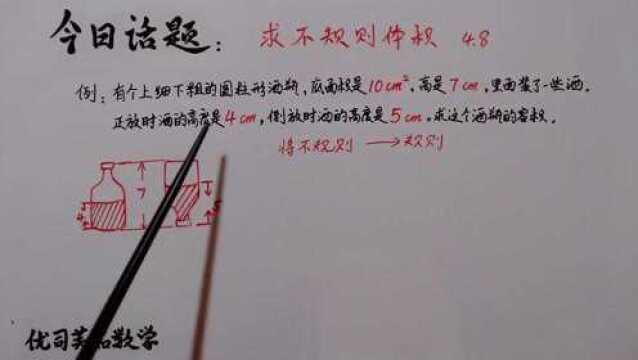 今日话题: 求不规则体积 4.8
例:有个上细下粗的圆柱形酒瓶,底面积是10cm²,高是7cm,里面装了一些酒。
正放时酒的高度是4cm,倒放时酒的高度是5cm。求这个酒瓶的容积。
将不规则→规则
4 7 5
优司芙 数学